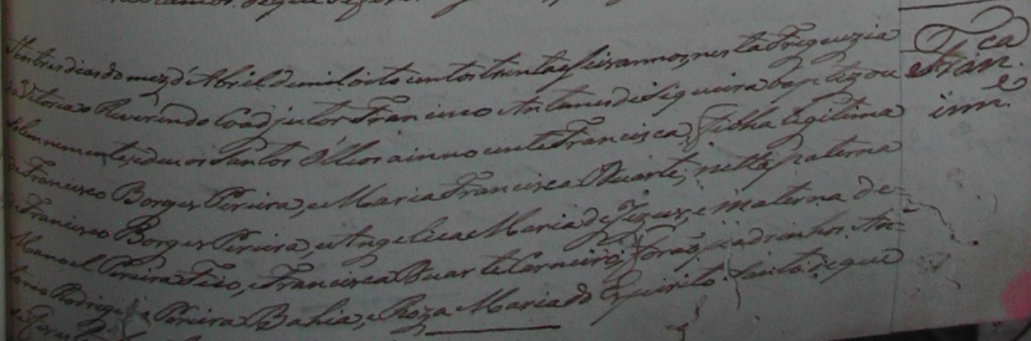 Aos tres dias do mez d'Abril de mil oito centos trenta e seis annos, nesta Freguezia
da Vitoria o Reverendo Coadjutor Francisco Antunes de Siqueira baptizou
solemnemente, e deu os Santos Olleos a innocente Francisca, filha legitima
de Francisco Borges Pereira, e Maria Francisca Duarte, netta paterna
de Francisco Borges Pereira, e Angelica Maria de Jezus, e materna de
Manoel Pereira Feio, e Francisca Duarte Carneiro; forão padrinhos An-
tonio Rodrigues Pereira Bahia, e Roza Maria do Espirito Santo: de que
Fca
Fran.